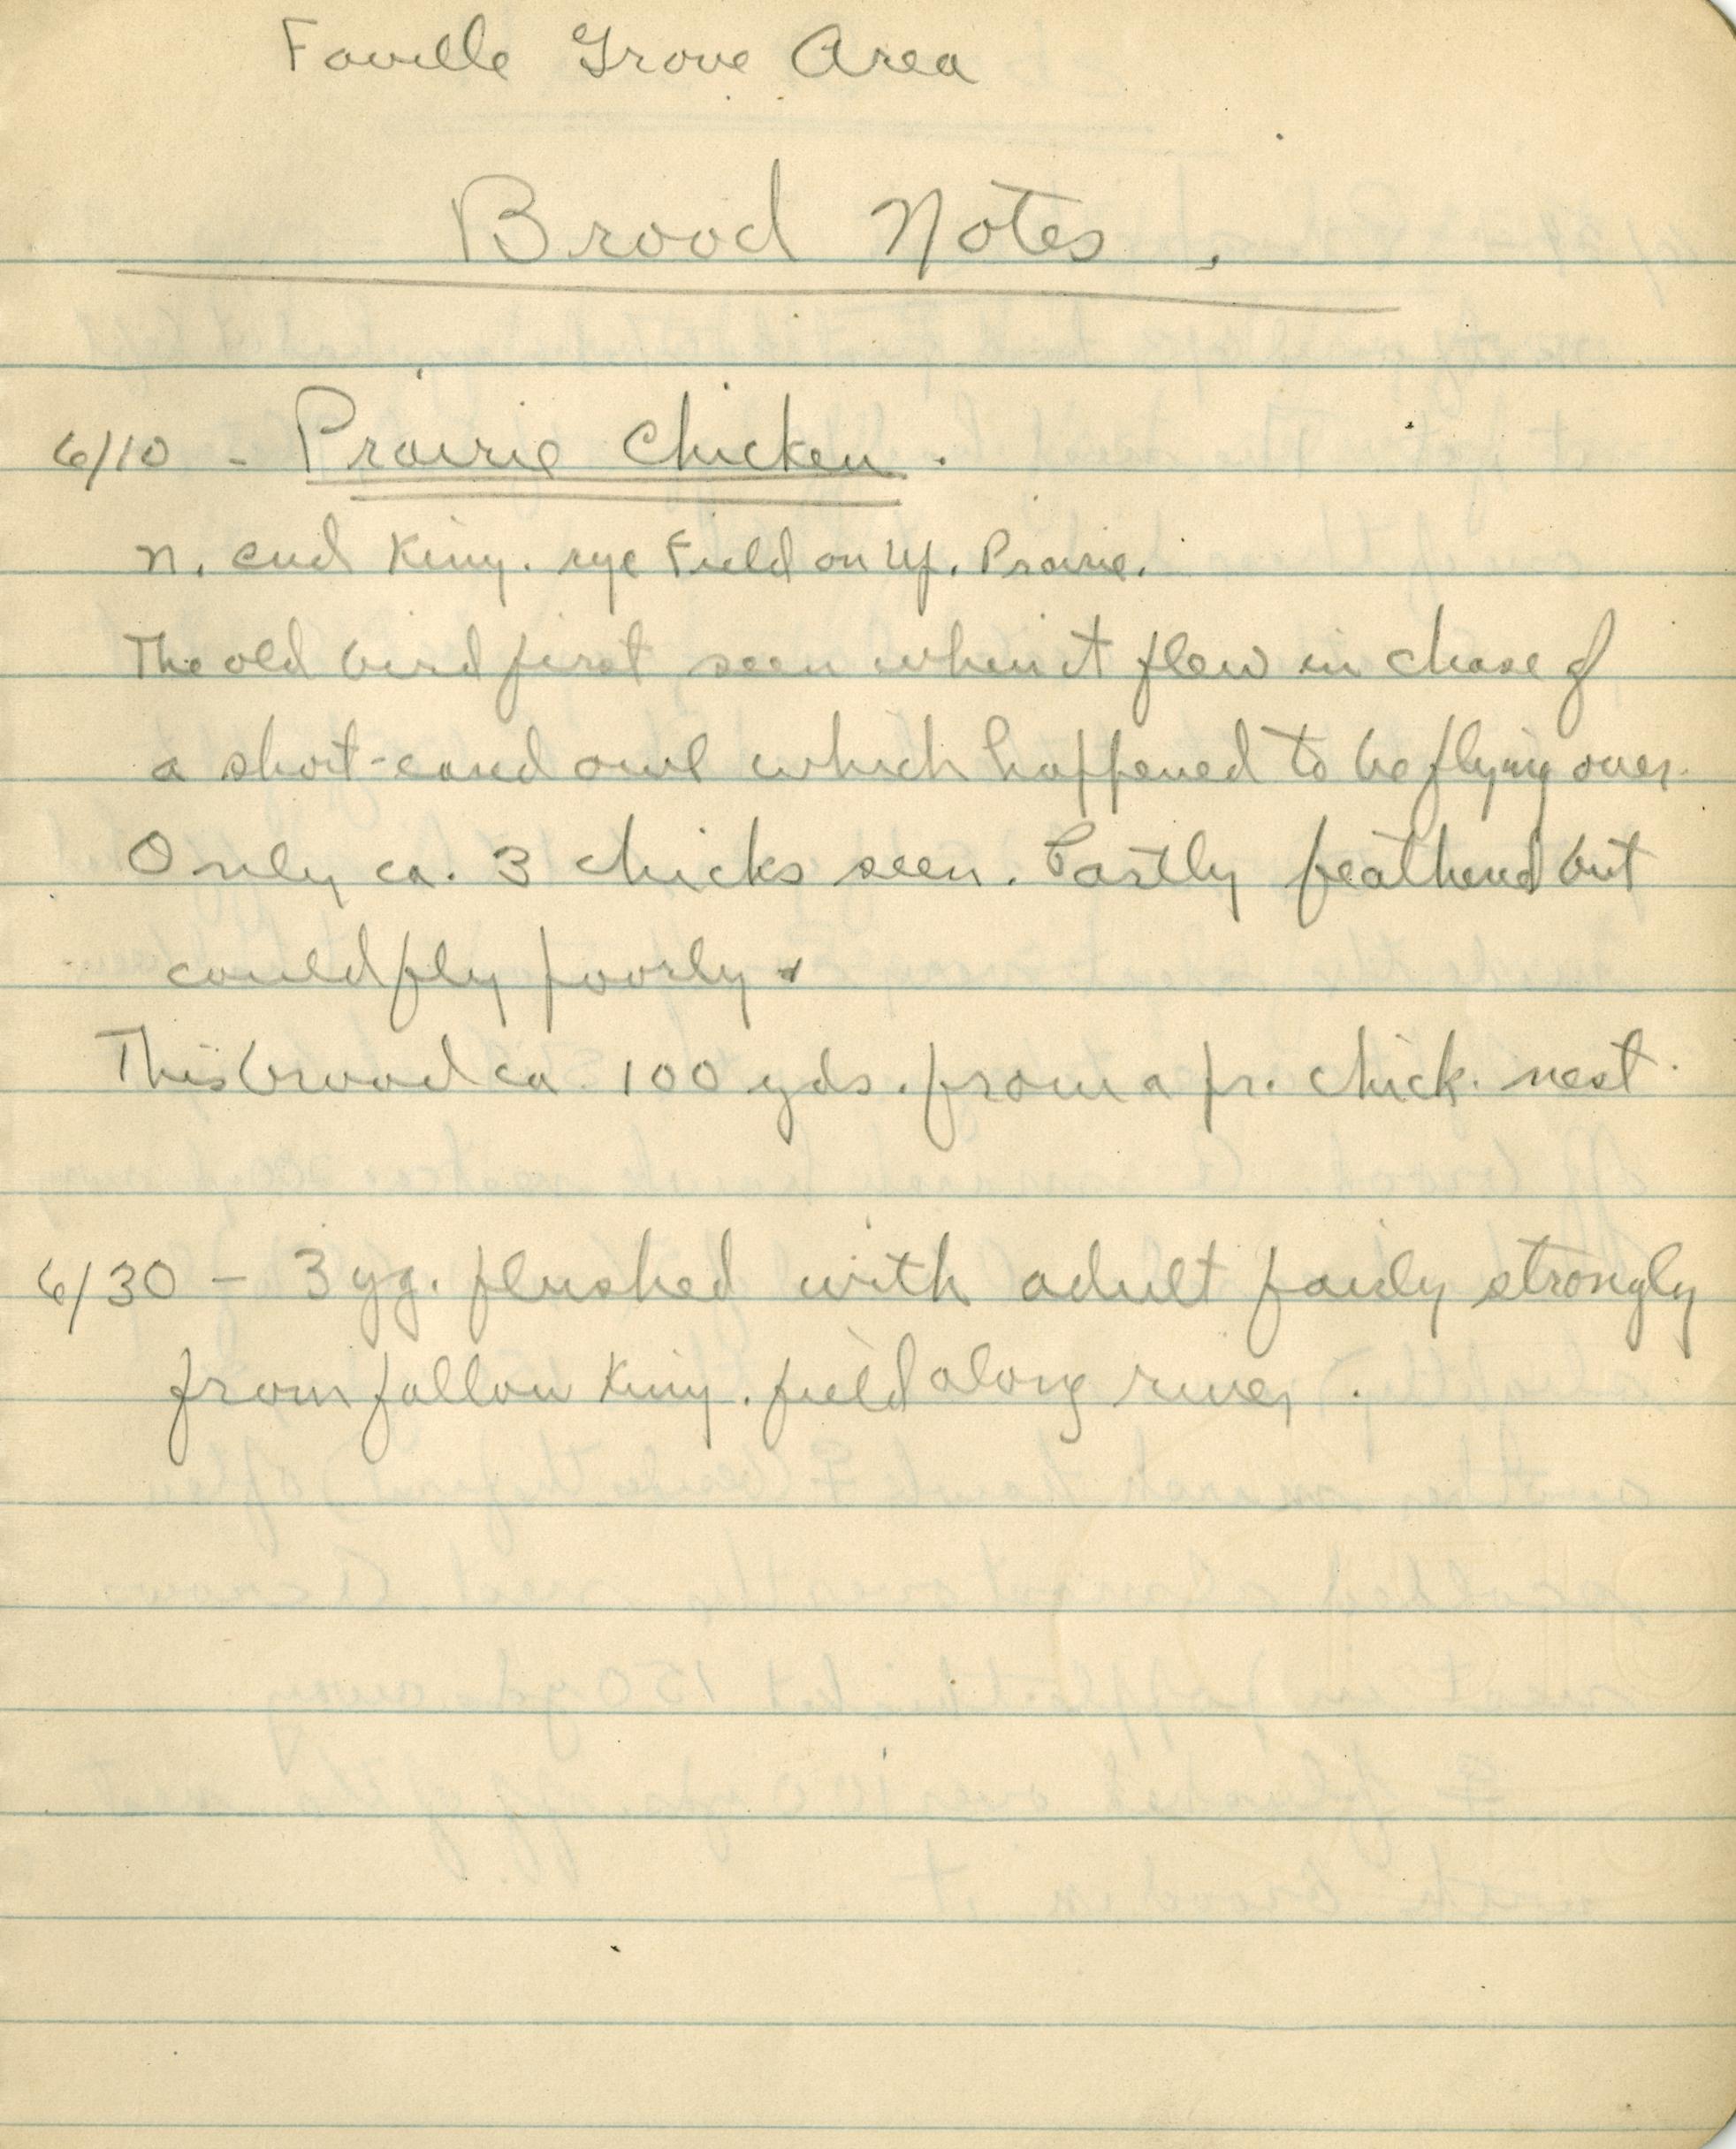 Faville Grove Area
Brood Notes.
6/10 - Prairie Chicken.
N. end Kiny. rye Field on Up. Prairie.
The old bird first seen when it flew in chase of
a short-eared owl which happened to be flying over.
Only ca. 3 chicks seen. Partly feathered but
could fly poorly.
This brood ca. 100 yds. from a pr. chick. nest.
6/30 - 3 yg. flushed with adult fairly strongly
from fallow Kiny. field along river.